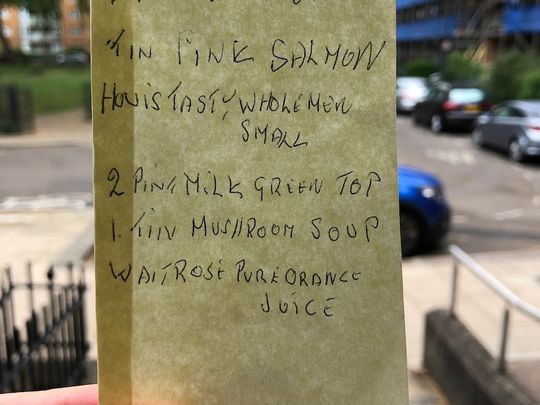 TIN PINK SALMON
HOVIS TASTY WHOLEMEN
SMALL
2 PINT MILK GREEN TOP
1. TIN MUSHROOM SOUP
WAITROSE PURE ORANGE
JUICE